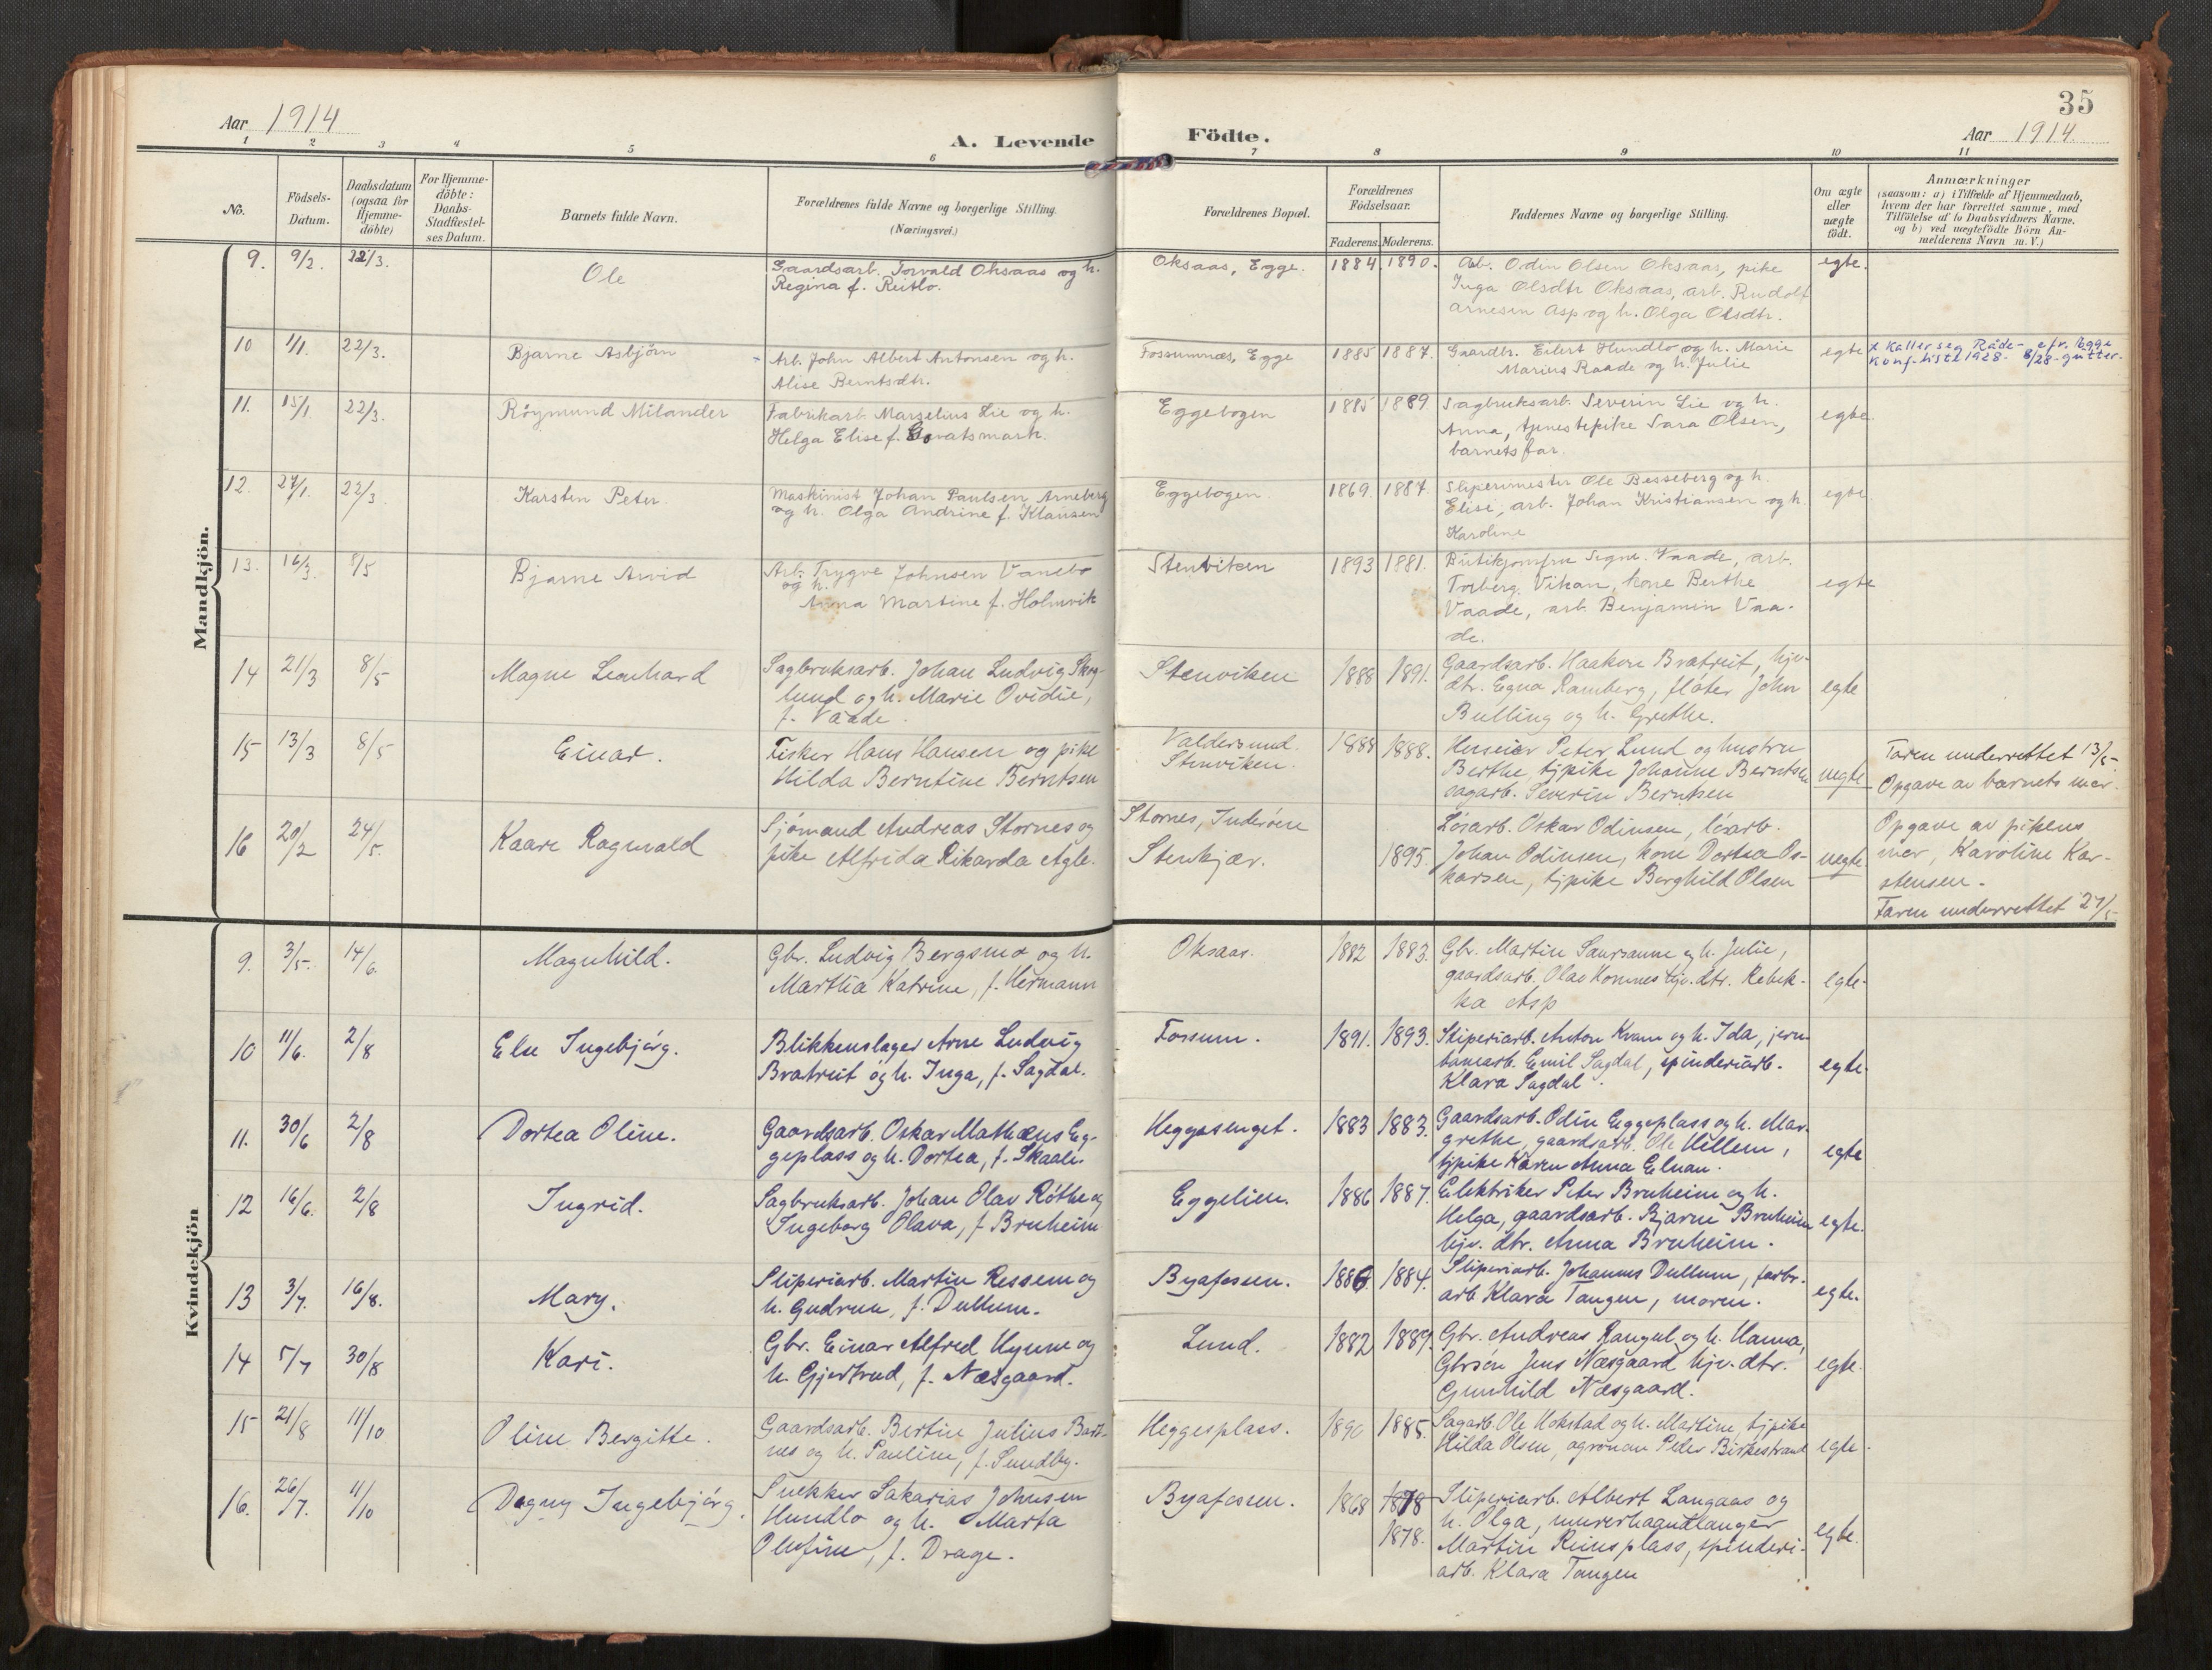 35
Aar 1914
A. Levende Födte.
Aar 1914.
1 2 3 4 5 6 7 8 9 10 11
No.
Födsels-
Datum.
Daabsdatum
(ogsaa for
Hjemme-
döbte)
For Hjemme-
döbte:
Daabs-
Stadfæstel-
ses Datum.
Barnets fulde Navn.
Forældrenes fulde Navne og borgerlige Stilling.
(Næringsvei.)
Forældrenes Bopæl.
Forældrenes
Födselsaar.
Faderens. Moderens.
Faddernes Navne og borgerlige Stilling.
Om ægte
eller
uægte
födt.
Anmærkninger
(saasom: a) i Tilfælde af Hjemmedaab,
hvem der har forrettet samme, med
Tilföielse af to Daabsvidners Navne,
og b) ved uægtefödte Börn An-
melderens Navn m. V.)
Mandkjön.
9. 9/2. 22/3.
Ole
Gaardsarb. Torvald Oksaas og h.
Regina f. Reitlo.
Oksaas, Egge.
1884. 1890.
Arb. Odin Olsen Oksaas, pike
Inga Olsdtr Oksaas, arb. Rudolf
Arnesen Asp og h. Olga Olsdtr.
egte.
10 1/1. 22/3.
Bjarne Asbjörn
Arb. John Albert Antonsen og h.
Alise Berntsdtr.
Fossumnæs, Egge
1885 1887.
Gaardbr. Eilert Hundlo og h. Marie
Marius Raade og h. Julie
egte
x Kaller seg Råde- efr. Egge
Konf-liste 1928- 8/28-gutter-
11. 15/1. 22/3.
Röymund Milander
Fabrikarb. Marselius Lie og h.
Helga Elise f.
Eggebogen
1885 1889
Sagbruksarb. Severin Lie og h.
Anna, tjenestepike Sara Olsen,
barnets far.
egte
12. 27/1. 22/3
Karsten Peter.
Maskinist Johan Paulsen Arneberg
og h. Olga Andrine f. Klausen
Eggebogen
1869. 1887.
Sliperimester Ole Besseberg og h.
Elise, arb. Johan Kristiansen og h.
Karoline
egte
13. 16/3. 8/5
Bjarne Arvid
Arb. Trygve Johnsen Vanebo
og h.
Anna Martine f. Holmvik
Stenviken
1893 1881.
Butikjomfru Signe Vaade, arb.
Torberg Vikan, kone Berthe
Vaade, arb. Benjamin Vaa-
de.
egte
14 21/3 8/5
Magne Leonhard
Sagbruksarb. Johan Ludvig Skog-
lund og h. Marie Ovidie,
f. Vaade.
Stenviken
1888 1891.
Gaardsarb. Haakon Bratreit, hjv.
dtr. Egna Ramberg, flöter John
Bulling og h. Grethe.
egte
15 13/3 8/5
Einar.
Fisker Hans Hansen og pike
Hilda Berntine Berntsen
Valdersund.
Stenviken.
1888 1888.
Huseier Peter Lund og hustru
Berthe, tjpike Johanne Berntsen
sagarb. Severin Berntsen
uegte
Faren underrettet 13/5-
Opgave av barnets mor.
16 20/2 24/5.
Kaare Ragnvald
Sjömand Andreas Stornes og
pike Alfrida Rikarda Agle.
Stornes, Inderöen
Stenkjær.
1895.
Lösarb. Oskar Odinsen, lösarb.
Johan Odinsen, kone Dortea Os-
karsen, tjpike Borghild Olsen
uegte
Opgave av pikens
mor, Karoline Kar-
stensen.
Faren underrettet 27/5-
Kvindekjön
9. 3/5. 14/6.
Magnhild.
Gbr. Ludvig Bergsmo og h.
Martha Katrine, f. Hermann
Oksaas.
1882 1883.
Gbr. Martin Saursaune og h. Julie,
gaardsarb. Olav Homnes hjv. dtr. Rebek-
ka Asp
egte.
10 11/6. 2/8
Else Ingebjörg.
Blikkenslager Arne Ludvig
Bratreit og h. Inga, f. Sagdal.
Fossum.
1891. 1893.
Sliperiarb. Anton Kvam og h. Ida, jern-
banearb. Emil Sagdal, spinderiarb.
Klara Sagdal.
egte.
11. 30/6 2/8
Dortea Oline.
Gaardsarb. Oskar Mathæus Eg-
geplass og h. Dortea, f. Skaale.
Heggesenget.
1883 1883.
Gaardsarb. Odin Eggeplass og h. Mar-
grethe, gaardsarb. Ole Hellem,
tjpike Karen Anna Elnan.
egte
12 16/6. 2/8
Ingrid.
Sagbruksarb. Johan Olav Röthe og
Ingeborg Olava, f. Bruheim
Eggelien.
1886 1887.
Elektriker Peter Bruheim og h.
Helga, gaardsarb. Bjarne Bruheim
hjv. dtr. Anna Bruheim.
egte.
13 3/7. 16/8.
Mary.
Sliperiarb. Martin Ressem og
h. Gudrun, f. Dullum.
Byafossen.
1886. 1884.
Sliperiarb. Johannes Dullum, fabr.
arb Klara Tangen, moren.
egte.
14 5/7 30/8
Kari.
Gbr. Einar Alfred Hynne og
h. Gjertrud, f. Næsgaard.
Lund.
1882 1889.
Gbr. Andreas Rangul og h. Hanna,
Gbrsön Jens Næsgaard hjv. dtr.
Gunhild Næsgaard.
egte.
15 21/8 11/10
Oline Bergitte.
Gaardsarb. Bertin Julius Bart-
nes og h. Pauline, f. Sundby.
Heggesplass.
1890 1885.
Sagarb. Ole Hokstad og h. Martine, tjpike
Hilda Olsen, agronom Peder Birkestrand
egte.
16. 26/7. 11/10
Dagny Ingebjörg.
Snekker Sakarias Johnsen
Hundlo og h. Marta
Olufine, f. Drage.
Byafossen.
1868 1878
1878.
Sliperiarb. Albert Langaas og
h. Olga, murerhaandlanger
Martin Reinsplass, spinderi-
arb. Klara Tangen
egte.